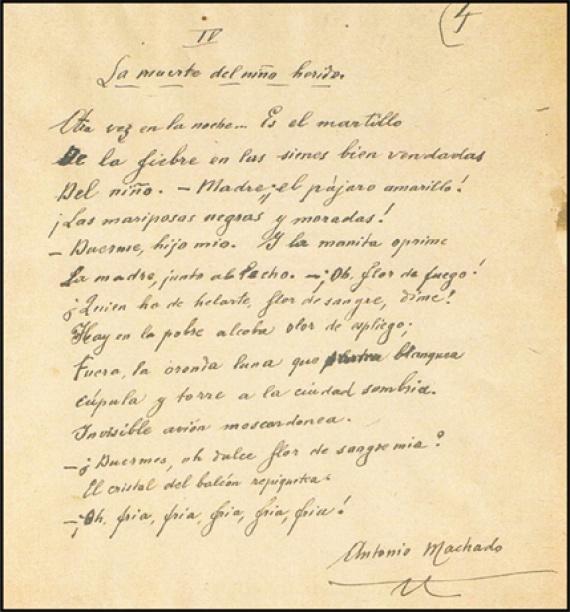 (4
IV
La muerte del niño herido.
Otra vez en la noche... Es el martillo
De la fiebre en las sienes bien vendadas
Del niño. — Madre, ¡el pájaro amarillo!
¡Las mariposas negras y moradas!
— Duerme, hijo mio. Y la manita oprime
La madre, junto al lecho. — ¡Oh, flor de fuego!
¿Quien ha de helarte, flor de sangre, dime?
Hay en la pobre alcoba olor de espliego;
Fuera, la oronda luna que blanquea
cúpula y torre a la ciudad sombria.
Invisible avión moscardonea.
— ¿Duermes, oh dulce flor de sangre mia?
El cristal del balcón repiquetea.
— ¡Oh, fria, fria, fria, fria, fria!
Antonio Machado